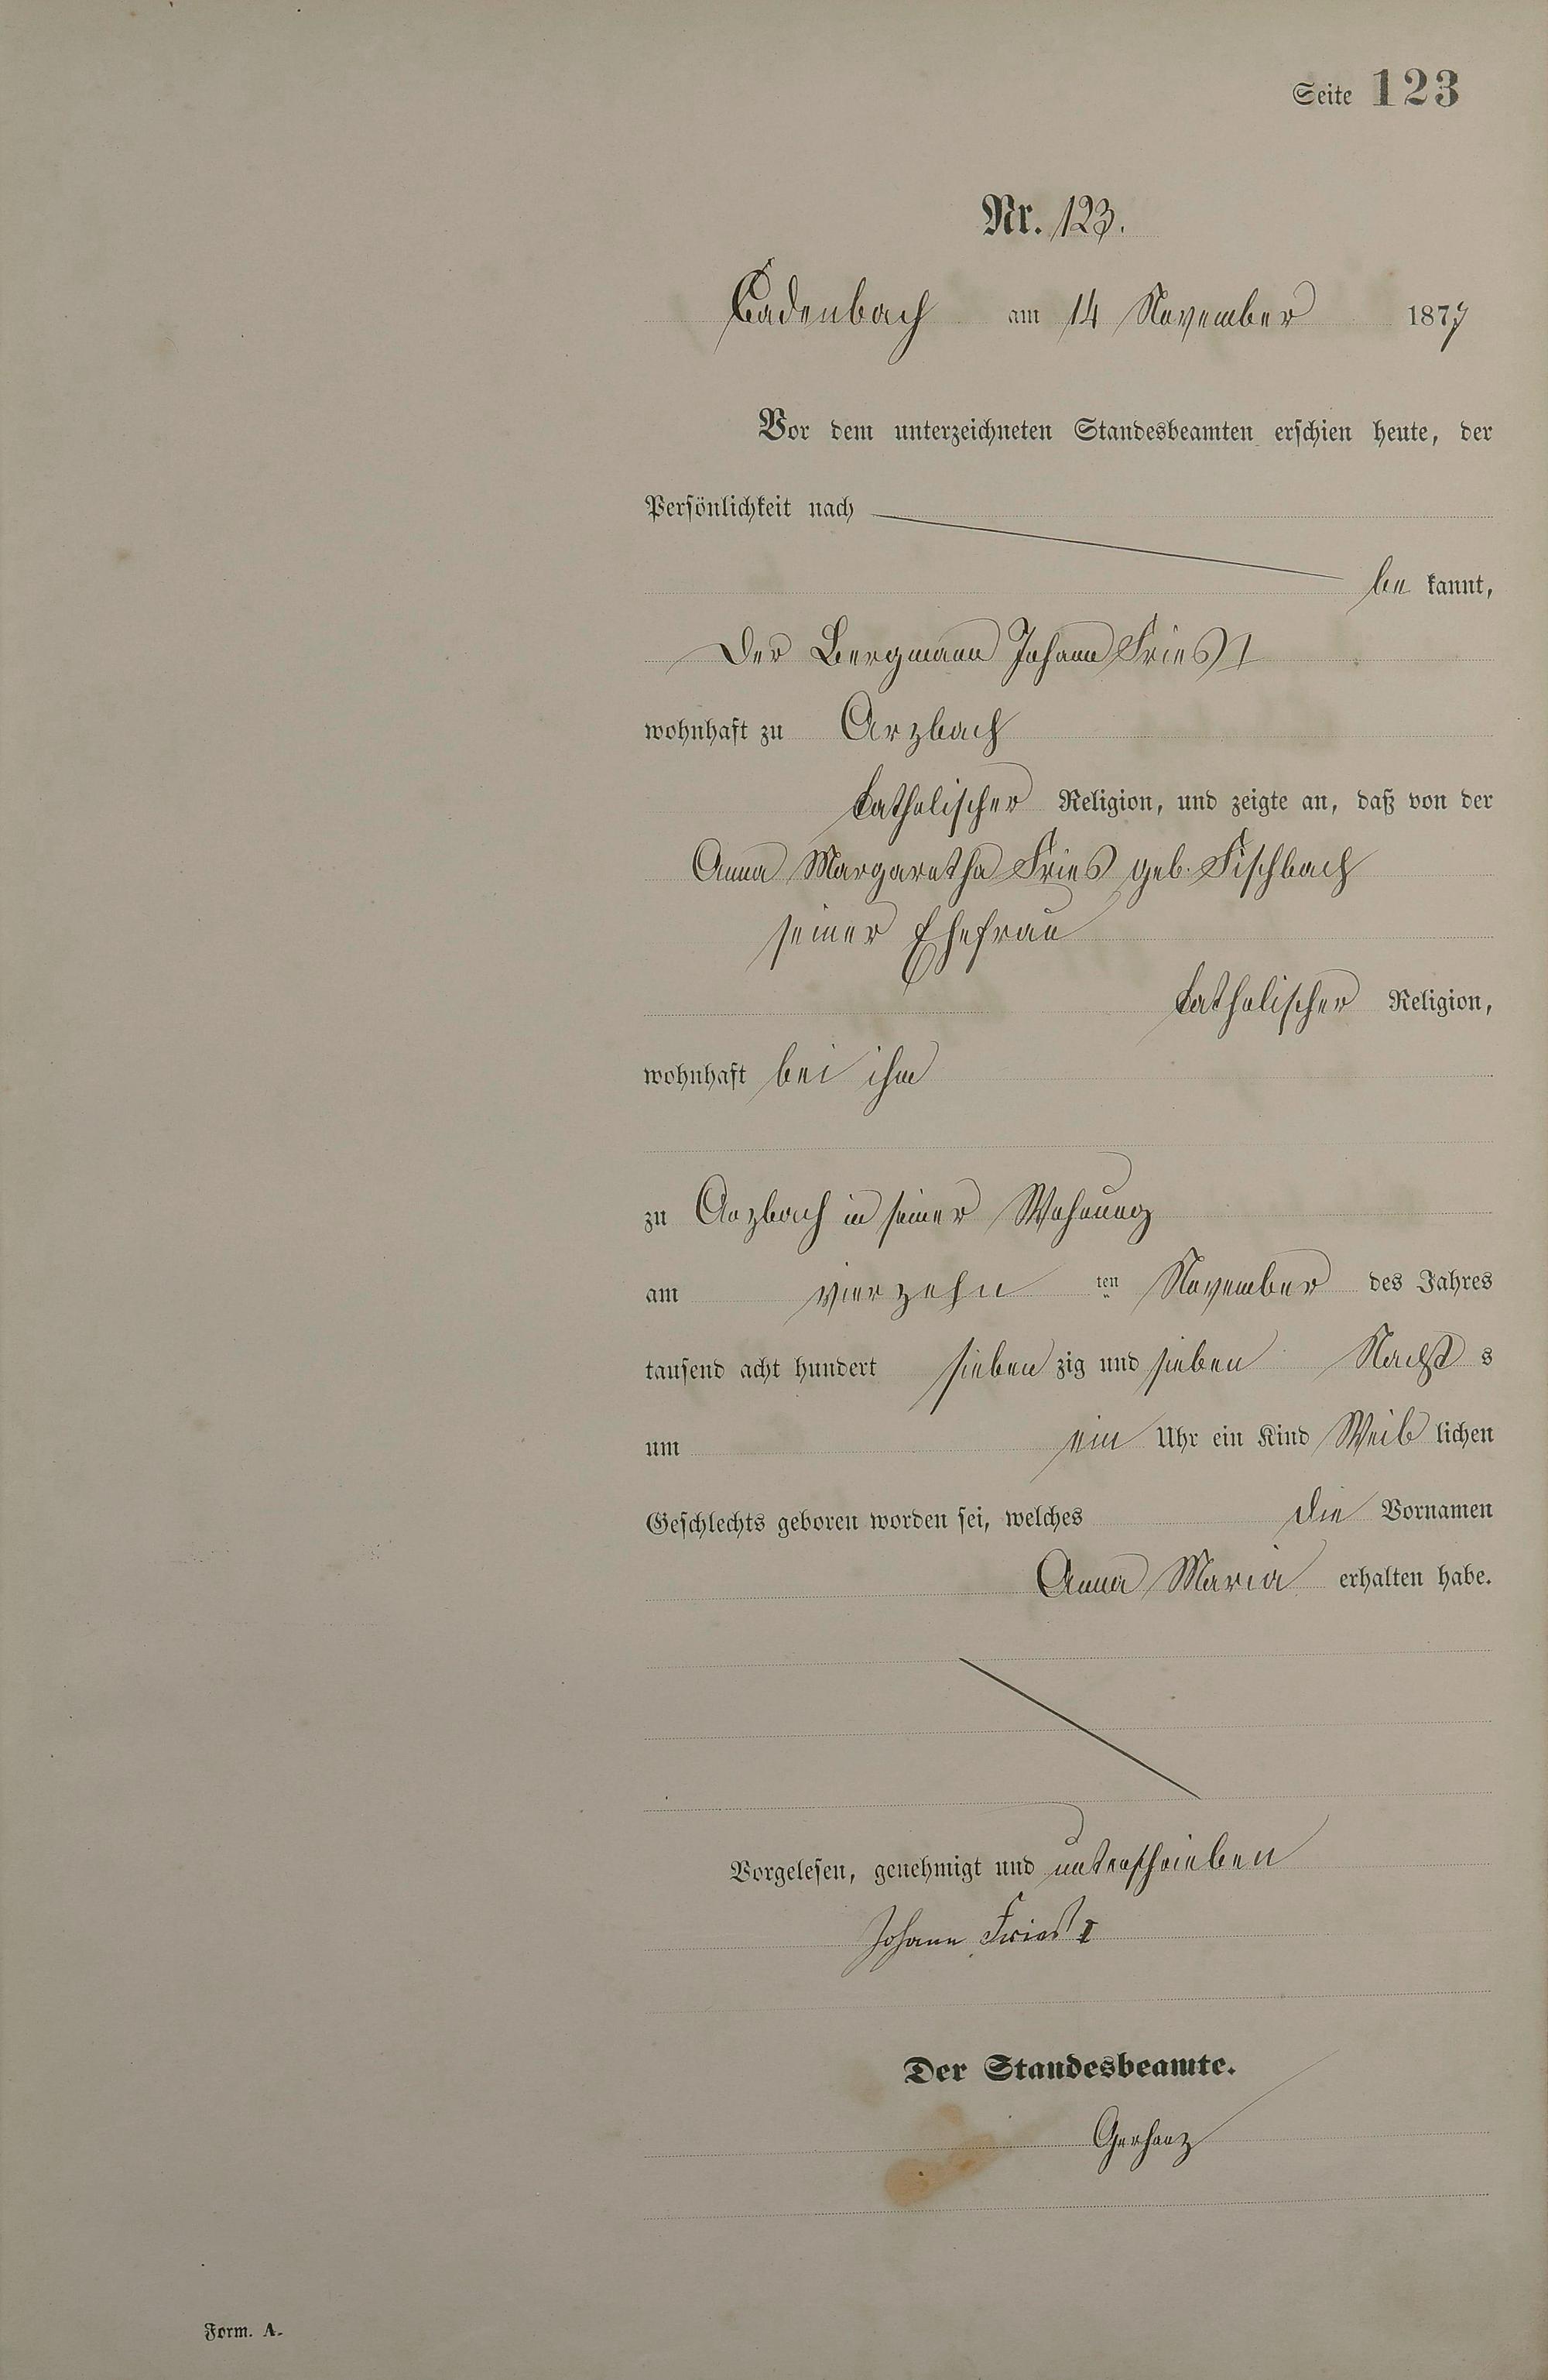 Seite 123
Nr. 123.
Cadenbach am 14 November 1877
Vor dem unterzeichneten Standesbeamten erschien heute, der
Persönlichkeit nach
be kannt,
Der Bergmann Johann Fries I
wohnhaft zu Arzbach
katholischer Religion, und zeigte an, daß von der
Anna Margaretha Fries geb. Fischbach
seiner Ehefrau
katholischer Religion,
wohnhaft bei ihm
zu Arzbach in seiner Wohnung
am vierzehn ten November des Jahres
tausend acht hundert sieben zig und sieben Nacht s
um ein Uhr ein Kind Weib lichen
Geschlechts geboren worden sei, welches die Vornamen
Anna Maria erhalten habe.
Vorgelesen, genehmigt und unterschrieben
Johann Fries I
Der Standesbeamte.
Gerharz
Form. A.